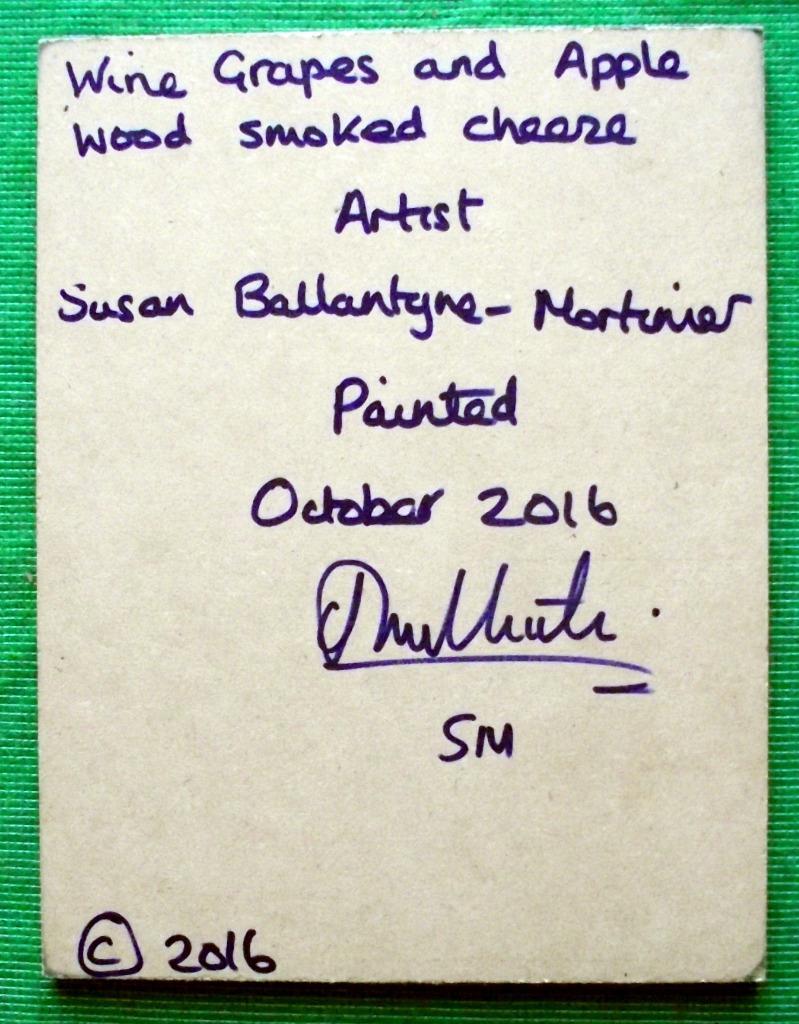 Wine Grapes and Apple
Wood smoked cheese
Artist
Susan Ballantyne-Mortimer
Painted
October 2016
SM
© 2016